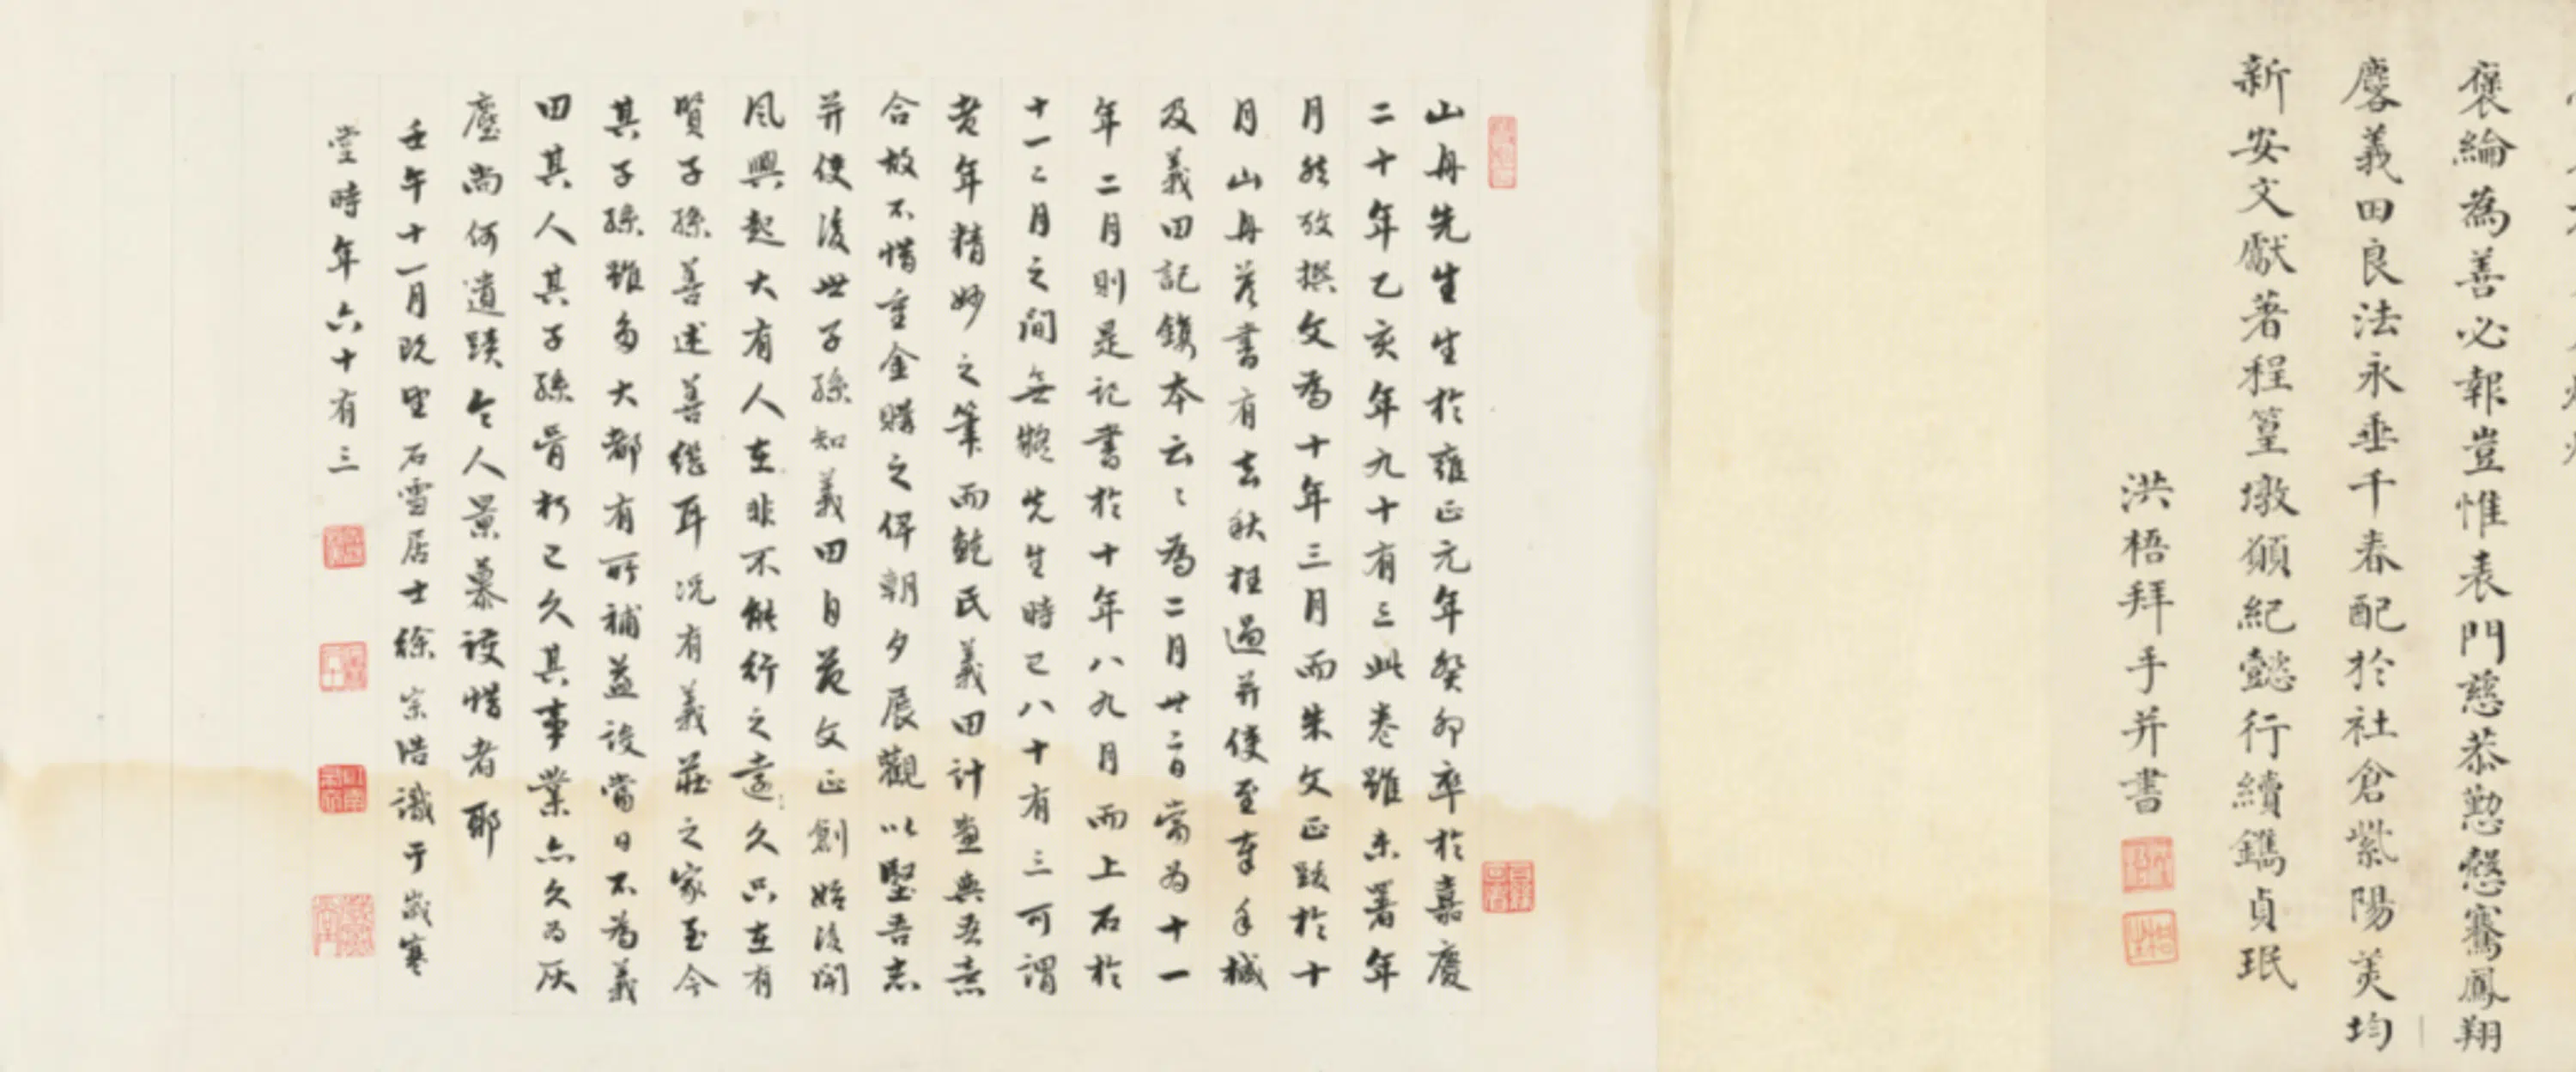 褒綸為善必報豈惟表門慈恭懃慇騫鳳翔
麐義田良法永垂千春配於社倉紫陽美均
新安文獻著程篁墩願紀懿行續鐫貞珉
洪梧拜手并書
山舟先生生於雍正元年癸卯卒於嘉慶
二十年乙亥年九十有三此卷雖未署年
月然攷撰文為十年三月而朱文正跋於十
月山舟答書有去秋枉過并使至奉手椷
及義田記鐫本云〻為二月廿二日當為十一
年二月則是記書於十年八九月而上石於
十一二月之間無疑先生時已八十有三可謂
耄年精妙之筆而鮑氏義田計畫與吾素
合故不惜重金購之俾朝夕展觀以堅吾志
并使後世子孫知義田自范文正創始後聞
風興起大有人在非不能行之遠久只在有
賢子孫善述善繼耳况有義莊之家至今
其子孫雖多大都有所補益設當日不為義
田其人其子孫骨朽已久其事業亦久為灰
塵尚何遺蹟令人景慕護惜者耶
壬午十一月既望石雪居士徐宗浩識于歲寒
堂時年六十有三